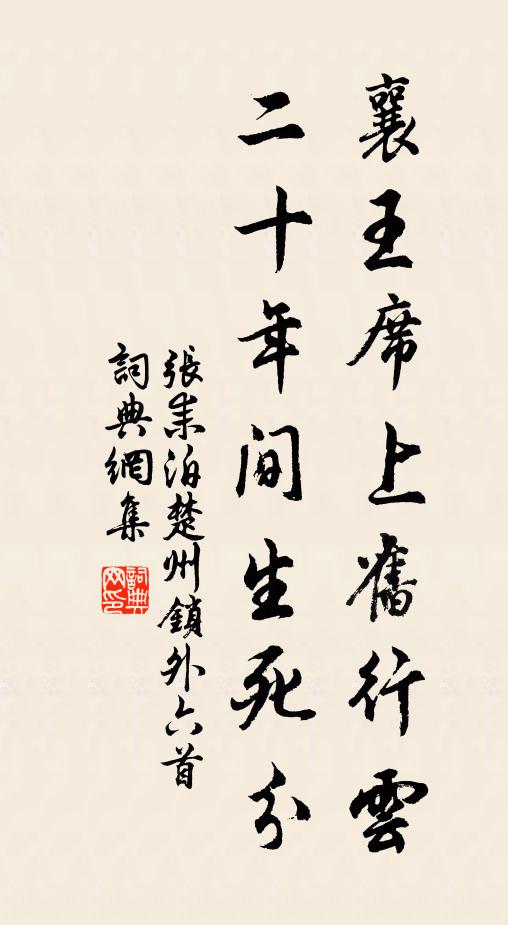 襄王席上舊行雲
二十年间生死分
張耒泊楚州鎖外六首
詞典網集
詞典網印